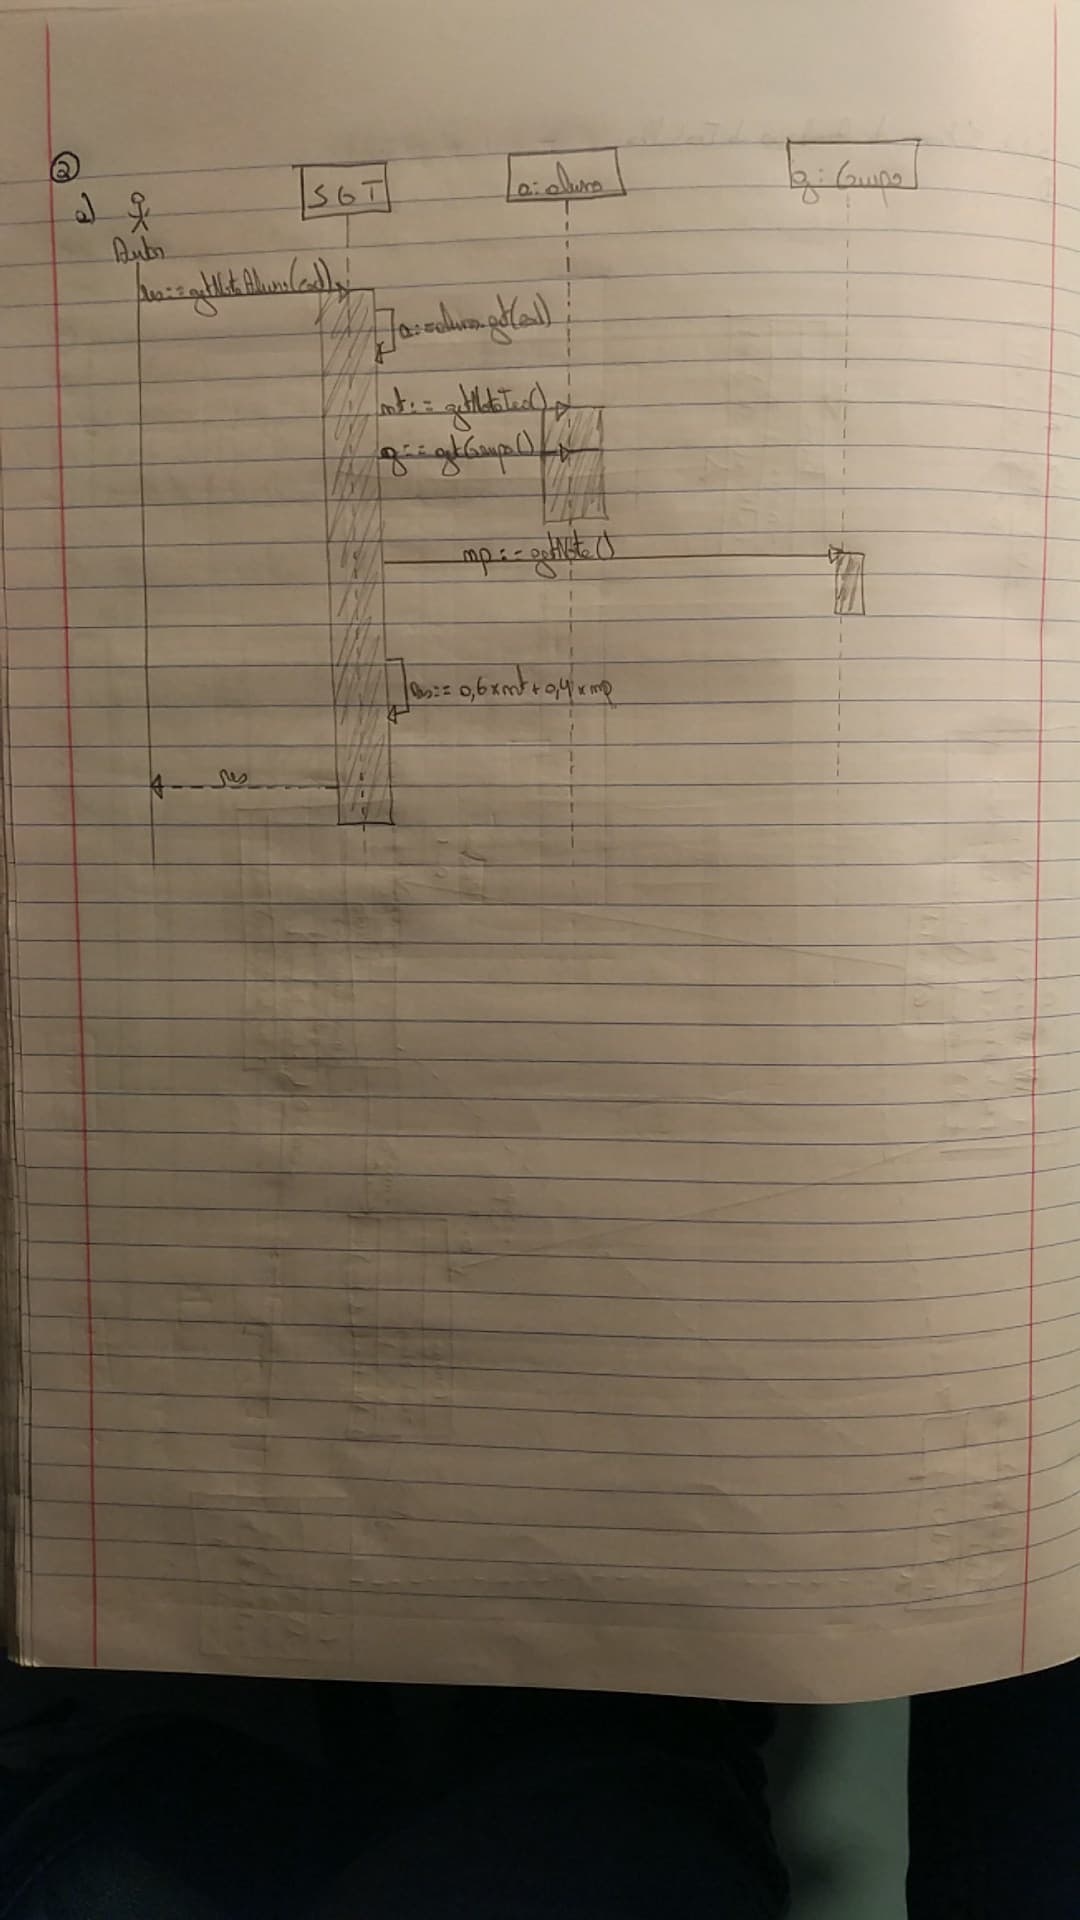 2
a)
SGT
a: aluno
g: Grupo
res:=getNotaAluno(cod)
a:=aluno.get(cod)
nt:= getNotaTeo()
g:= getGrupo()
np:=getNota()
res:= 0,6xnt+0,4xnp
res